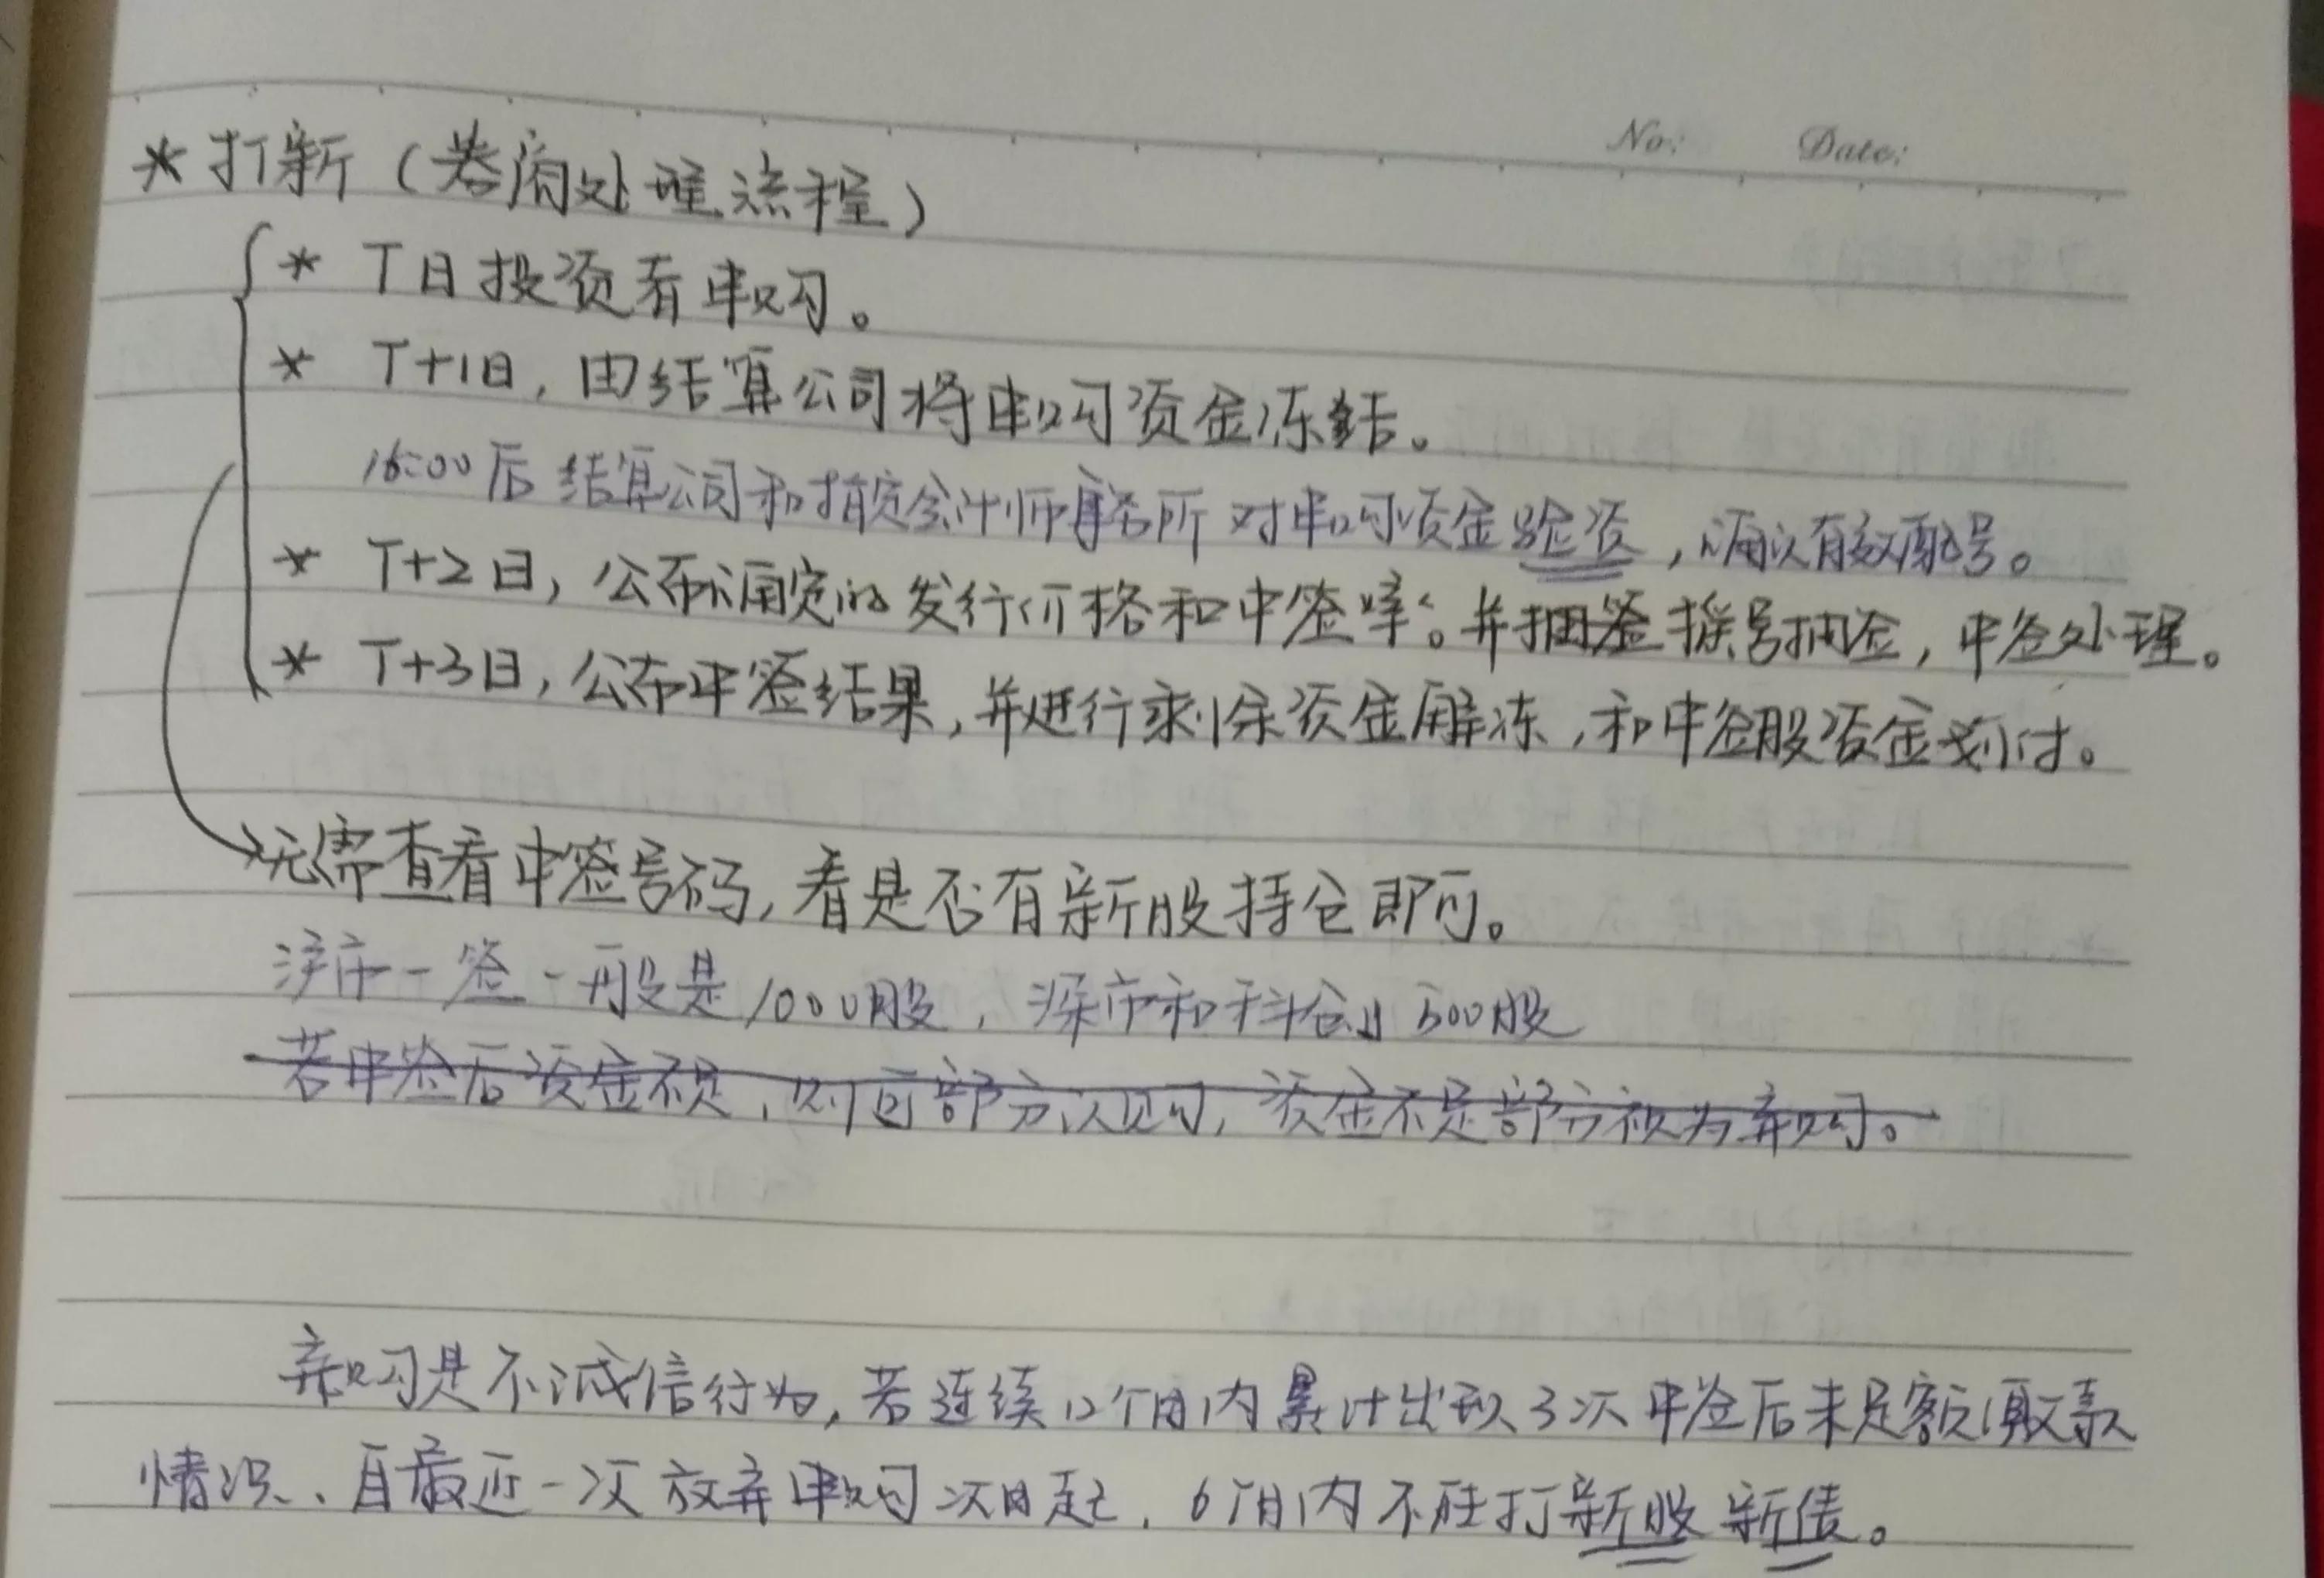 No: Date:
*打新（券商处理流程）
* T日投资者申购。
* T+1日，由结算公司将申购资金冻结。
16:00后 结算公司和指定会计师事务所 对申购资金验资，确认有效配号。
* T+2日，公布确定的发行价格和中签率。并抽签摇号抽签，中签处理。
* T+3日，公布中签结果，并进行剩余资金解冻，和中签股资金划付。
无需查看中签号码，看是否有新股持仓即可。
沪市一签一般是1000股，深市和科创 500股
若中签后资金不足，则可部分认购，资金不足部分视为弃购。
弃购是不诚信行为，若连续12个月内累计出现3次中签后未足额缴款
情况、自最近一次放弃申购次日起，6个月内不能打新股新债。